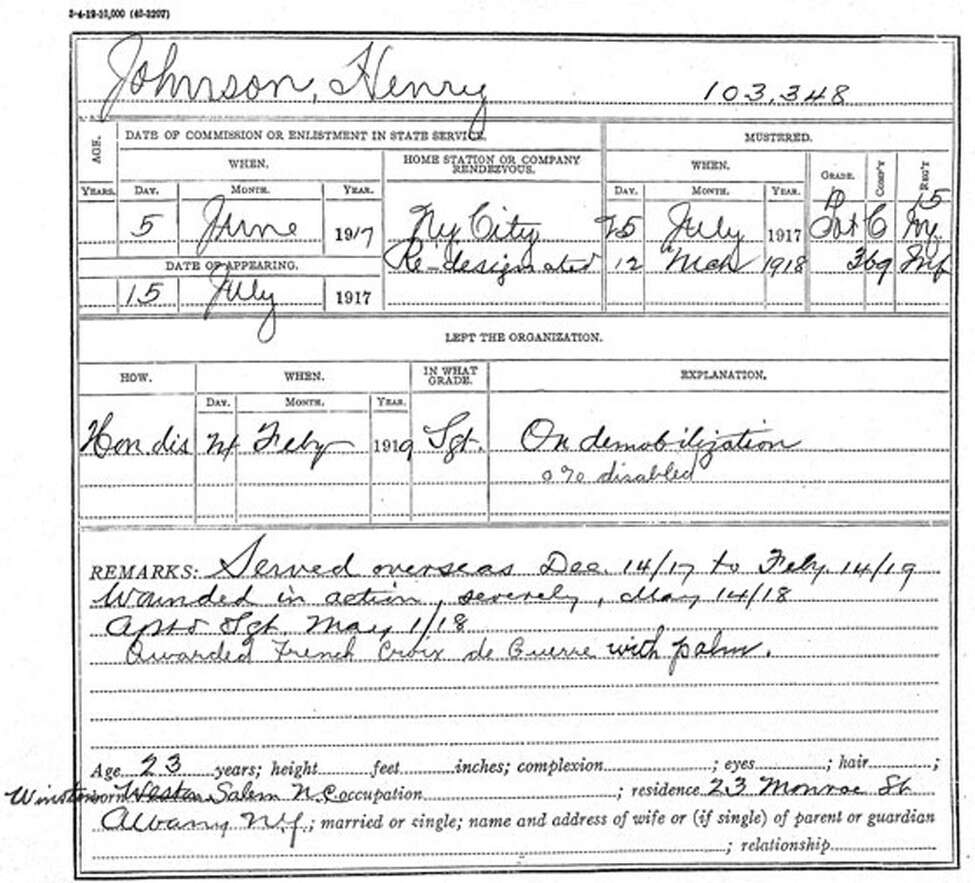 3-4-19-10,000 (43-2207)
Johnson, Henry 103,348
AGE. DATE OF COMMISSION OR ENLISTMENT IN STATE SERVICE. MUSTERED.
WHEN. HOME STATION OR COMPANY RENDEZVOUS. WHEN. GRADE. COMP'Y REG'T
YEARS. DAY. MONTH. YEAR. DAY. MONTH. YEAR.
15
5 June 1917 Ny City 25 July 1917 Pvt C Ny
Re-designated 12 Mch 1918 369 Inf
DATE OF APPEARING.
15 July 1917
LEFT THE ORGANIZATION.
HOW. WHEN. IN WHAT GRADE. EXPLANATION.
DAY. MONTH. YEAR.
Hon dis Feby 1919 Sgt. On demobilization
0 % disabled
REMARKS: Served overseas Dec. 14/17 to Feby. 14/19
Wounded in action, severely, May 14/18
Aptd Sgt May 1/18
Awarded French Croix de Guerre with palm.
Age 23 years; height feet inches; complexion ; eyes ; hair ;
Winston born Salem N.C. occupation ; residence 23 Monroe St
Albany N.Y. ; married or single; name and address of wife or (if single) of parent or guardian
; relationship